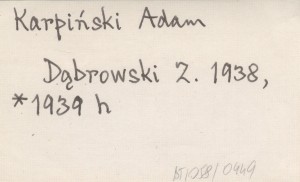 Karpiński Adam
Dąbrowski Z. 1938,
*1939 h
/058/0449